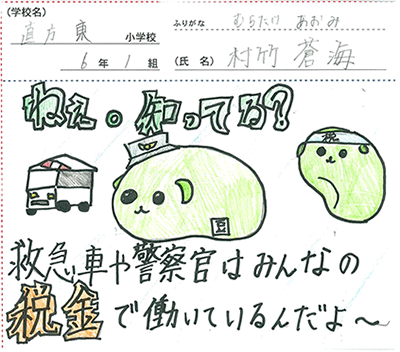 (学校名)
直方東 小学校
6年1組
ふりがな むらたけ あおみ
(氏名) 村竹 蒼海
ねぇ。知ってる?
税
豆
救急車や警察官はみんなの
税金で働いているんだよ〜